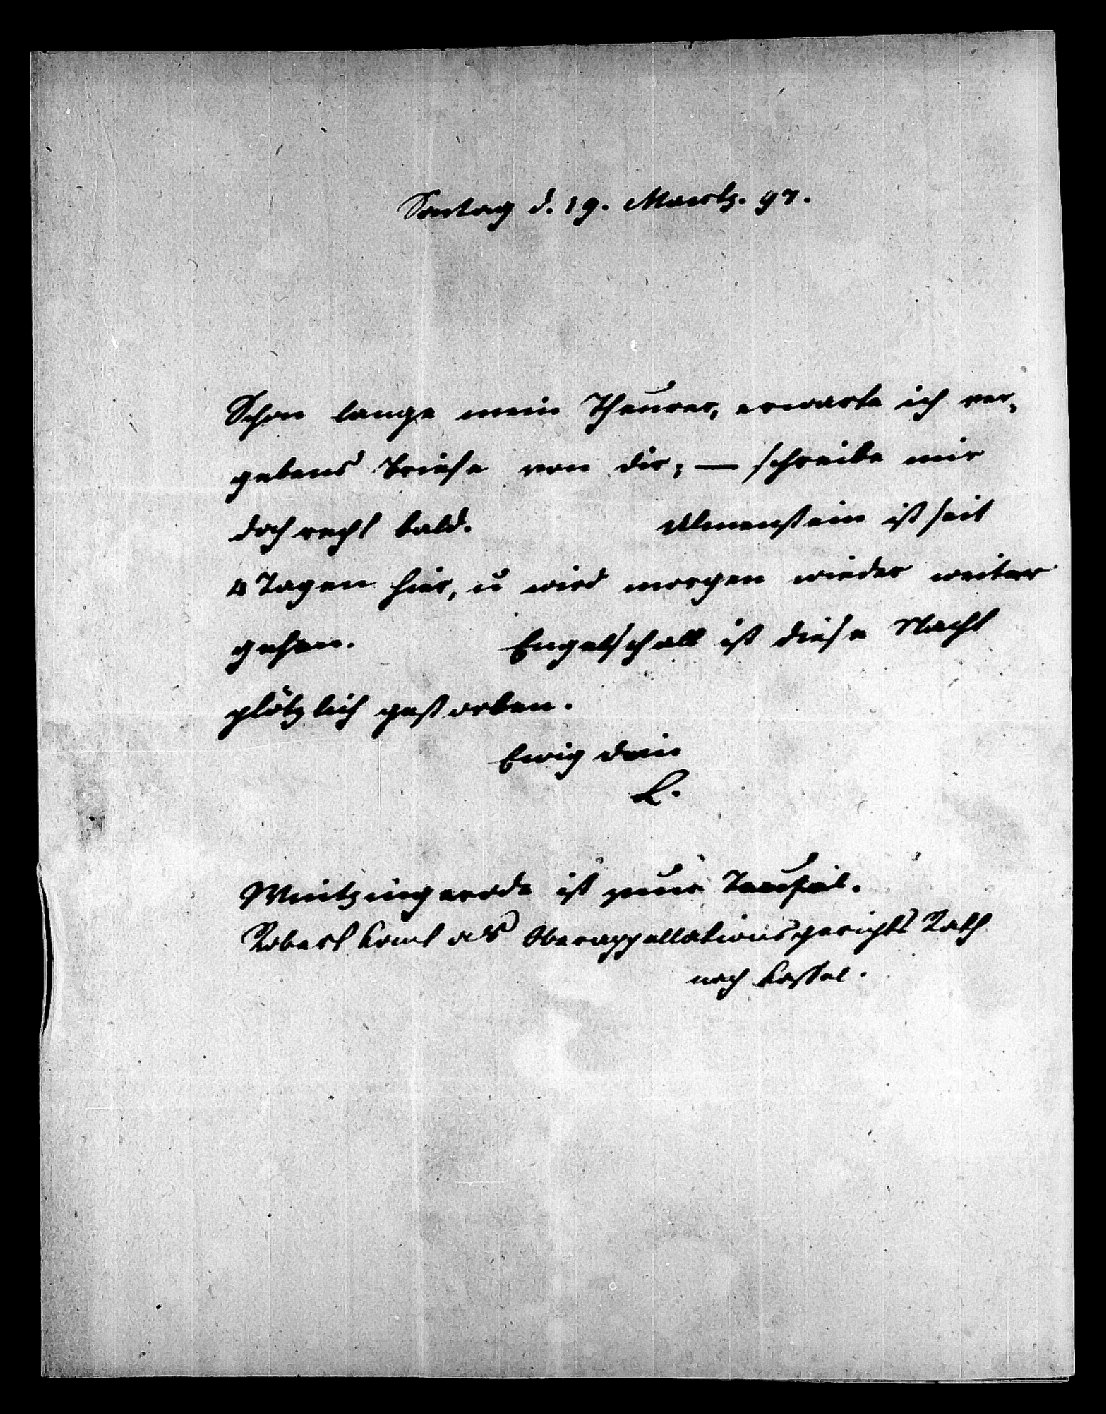 Sontag d. 19. Maertz. 97.
Schon lange mein Theurer, erwarte ich ver-
gebens briefe von dir; — schreibe mir
doch recht bald. Ulmenstein ist seit
4 Tagen hier, u wird morgen wieder weiter
gehen. Engelschall ist diese Nacht
plötzlich gestorben.
Ewig dein
L.
Wintzingerode ist zum Teufel.
Robert komt als Oberappellationsgerichts Rath
nach Cassel.